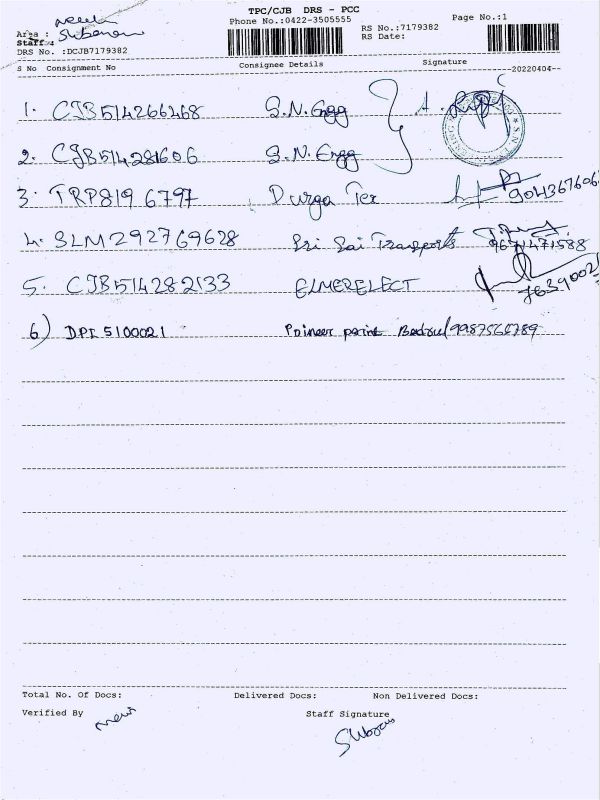 TPC/CJB DRS - PCC
Phone No.:0422-3505555
RS No.:7179382
Page No.:1
Area :
RS Date:
Staff:
DRS No. :DCJB7179382
S No Consignment No Consignee Details Signature
--20220404--
1. CJB514266468 S.N. Engg
2. CJB514281606 S.N. Engg
3. TRP819 6797 Durga Tex
4. SLM292769628 Sri Sai Transports 9671471588
5. CJB514282133 ELMERELECT
6) DPI 5100021
Total No. Of Docs: Delivered Docs: Non Delivered Docs:
Verified By Staff Signature